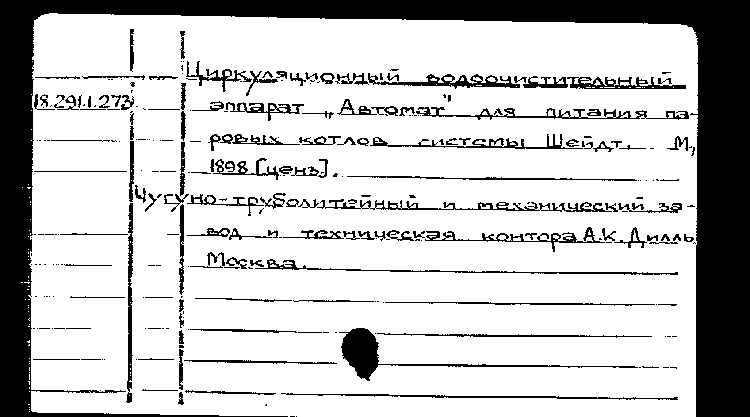 Циркуляционный водоочистительный
18.291.1.273
аппарат „Автомат" для питания па-
ровых котлов системы Шейдт. М,
1898 [ценз].
Чугуно-труболитейный и механический за-
вод и техническая контора А.К. Дилль
Москва.